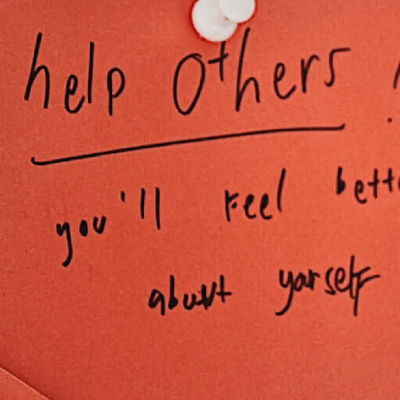 help others !
you'll feel bett
about yorself